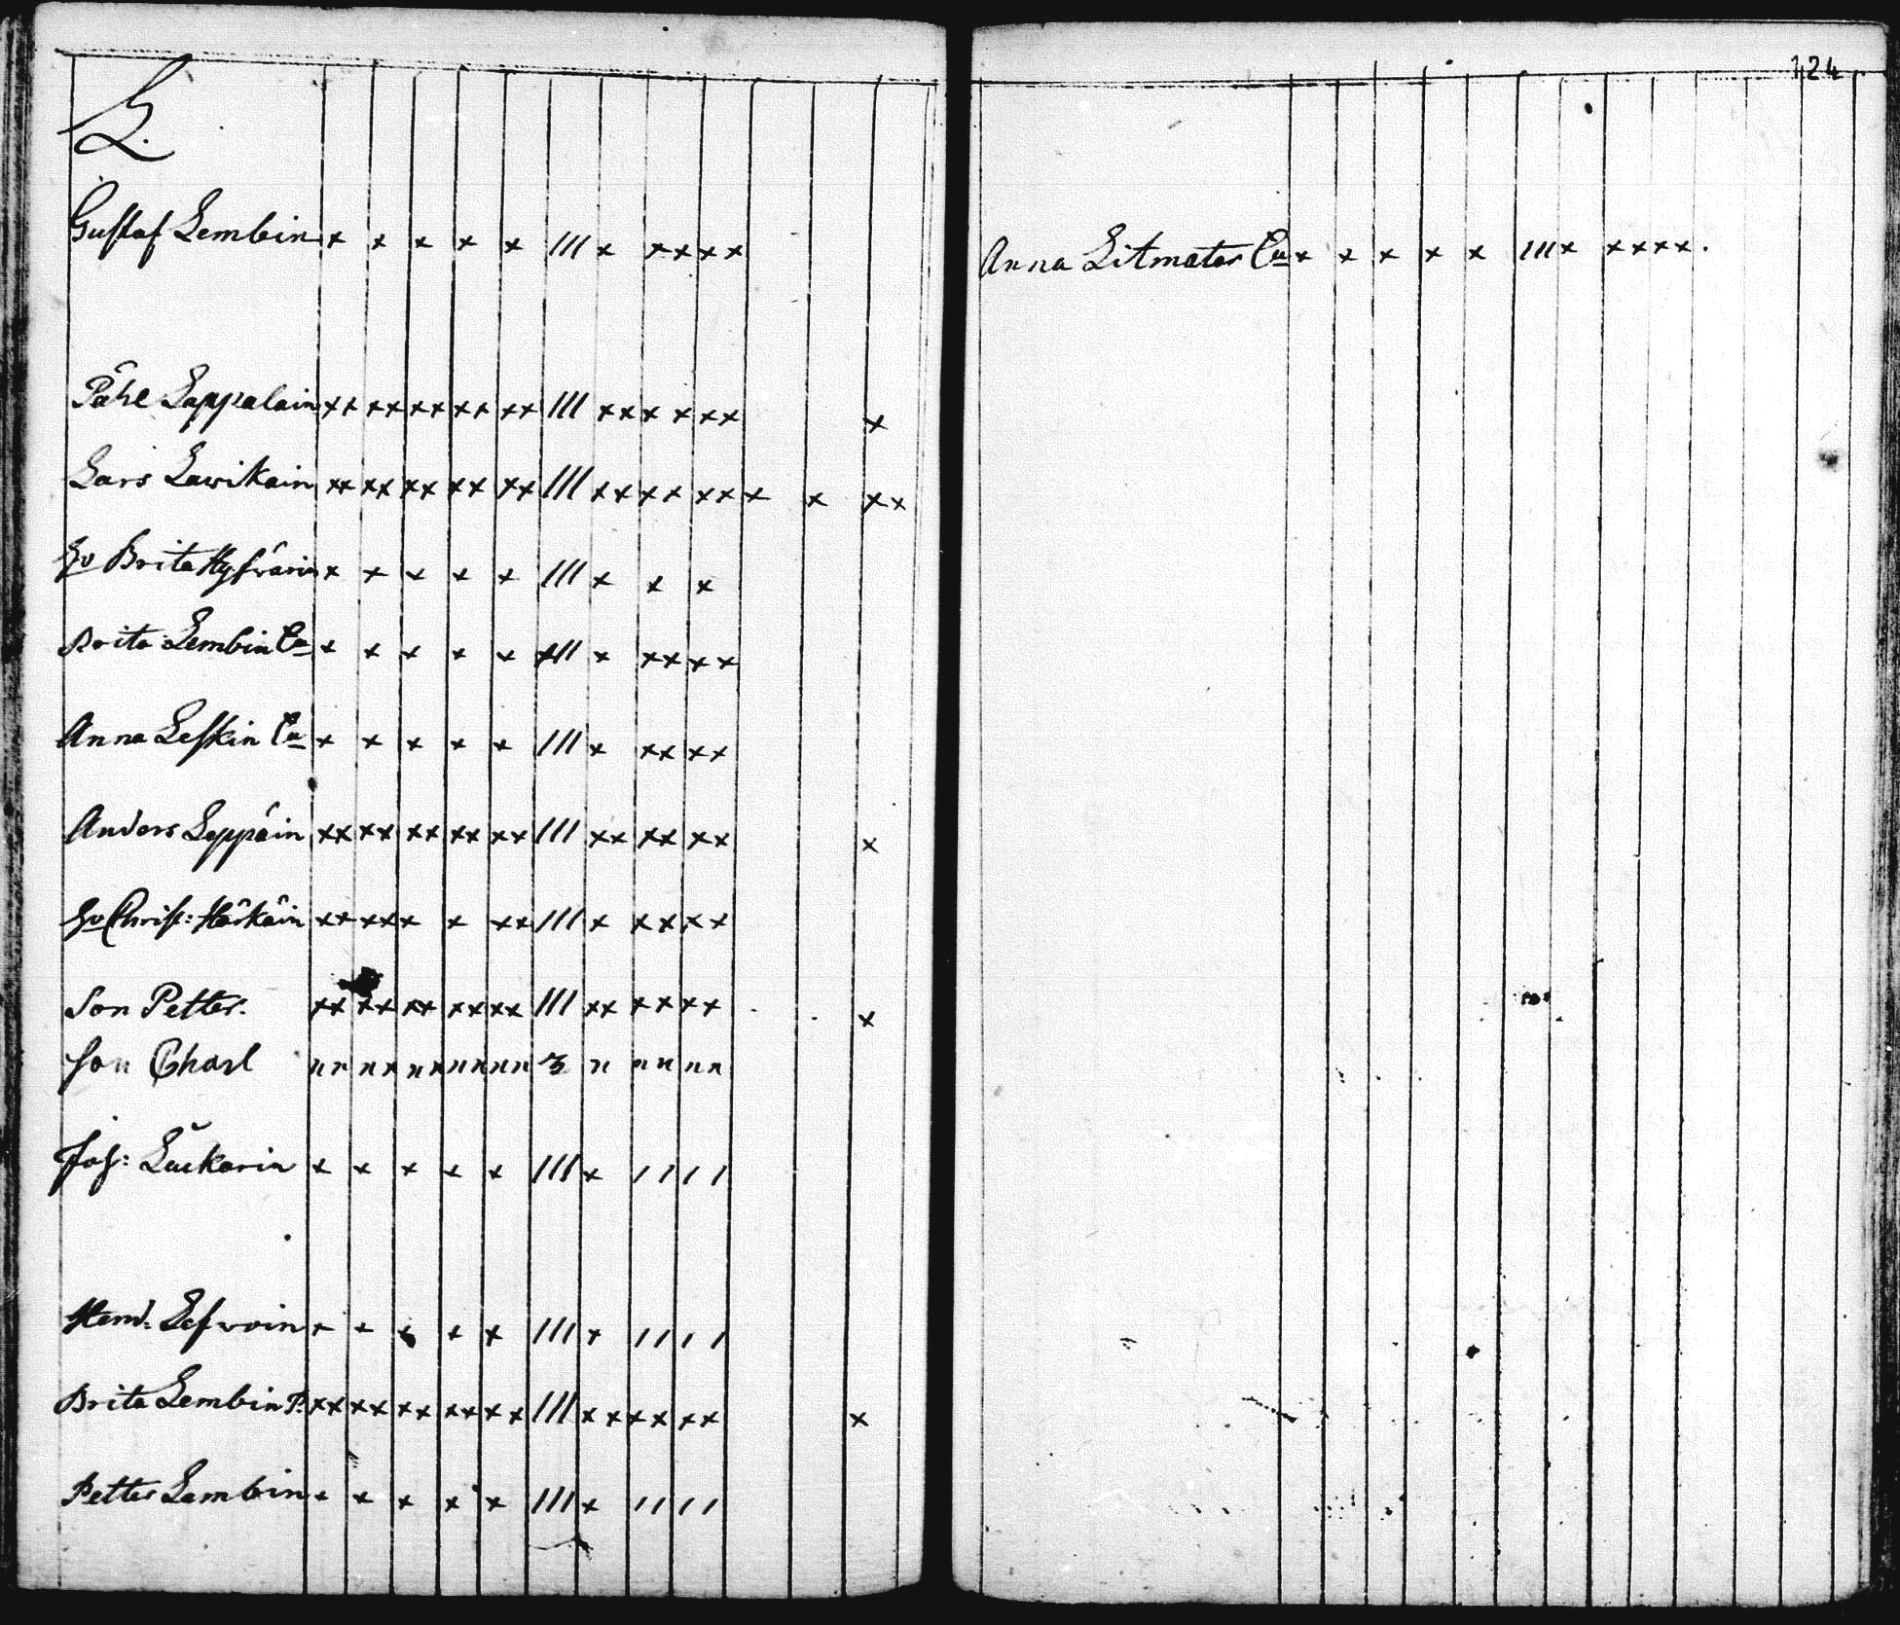 L.
Gustaf Lembin x x x x x III x x x x x
Påhl Lappalain xx xx xx xx xx III xx x x xx x
Lars Lavikain xx xx xx xx xx III xx xx xx x x xx
Hu Brita x x x x x III x x x
Brita Lembin Ea x x x x x III x xx xx
Anna Leskin Ea x x x x x III x xx xx
Anders Leppäin xx xx xx xx xx III xx xx xx x
Hu Christ: Härkäin xx xx x x xx III x xx xx
Son Petter. xx xx xx xx xx III xx xx xx x
Son Charl n n n x n x n n n n 3 n n n n n
Joh: Luckarin x x x x x III x / / / /
Hend: x x x x x III x / / / /
Brita Lembin P. xx xx xx xx xx III xx xx xx x
Petter Lembin x x x x x III x / / / /
124
Anna Litmater Ea x x x x x III x x x x x.